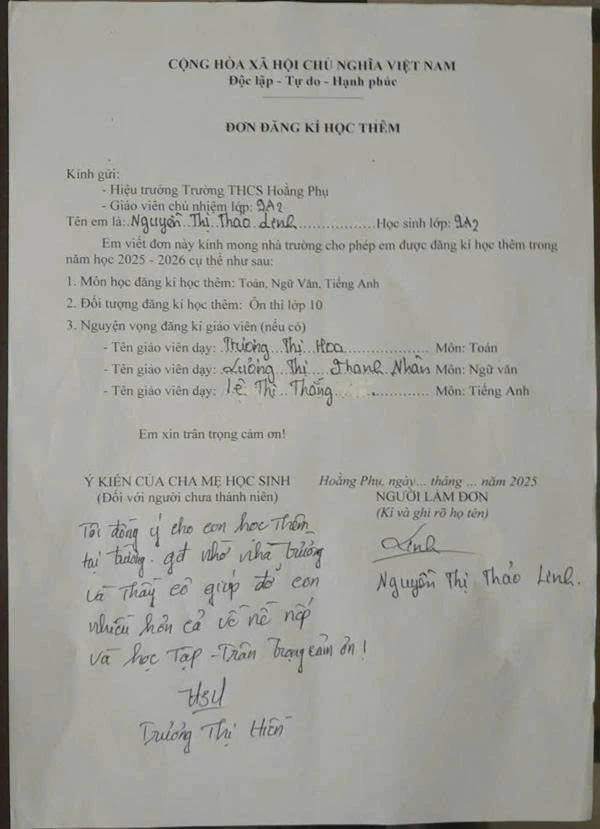 CỘNG HÒA XÃ HỘI CHỦ NGHĨA VIỆT NAM
Độc lập - Tự do - Hạnh phúc
ĐƠN ĐĂNG KÍ HỌC THÊM
Kính gửi:
- Hiệu trưởng Trường THCS Hoằng Phụ
- Giáo viên chủ nhiệm lớp: 9A2
Tên em là: Nguyễn Thị Thảo Linh Học sinh lớp: 9A2
Em viết đơn này kính mong nhà trường cho phép em được đăng kí học thêm trong
năm học 2025 - 2026 cụ thể như sau:
1. Môn học đăng kí học thêm: Toán, Ngữ Văn, Tiếng Anh
2. Đối tượng đăng kí học thêm: Ôn thi lớp 10
3. Nguyện vọng đăng kí giáo viên (nếu có)
- Tên giáo viên dạy: Trương Thị Hoa Môn: Toán
- Tên giáo viên dạy: Lường Thị Thanh Nhàn Môn: Ngữ văn
- Tên giáo viên dạy: Lê Thị Thắng Môn: Tiếng Anh
Em xin trân trọng cảm ơn!
Ý KIẾN CỦA CHA MẸ HỌC SINH
(Đối với người chưa thành niên)
Tôi đồng ý cho con học thêm
tại trường. gđ nhờ nhà trường
và thầy cô giúp đỡ con
nhiều hơn cả về nề nếp
và học tập - Trân trọng cảm ơn!
Trương Thị Hiền
Hoằng Phụ, ngày... tháng ... năm 2025
NGƯỜI LÀM ĐƠN
(Kí và ghi rõ họ tên)
Linh
Nguyễn Thị Thảo Linh.